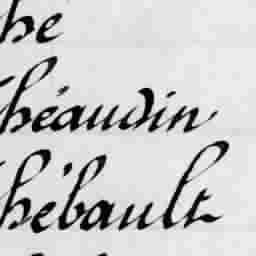 he
héaudin
hébault